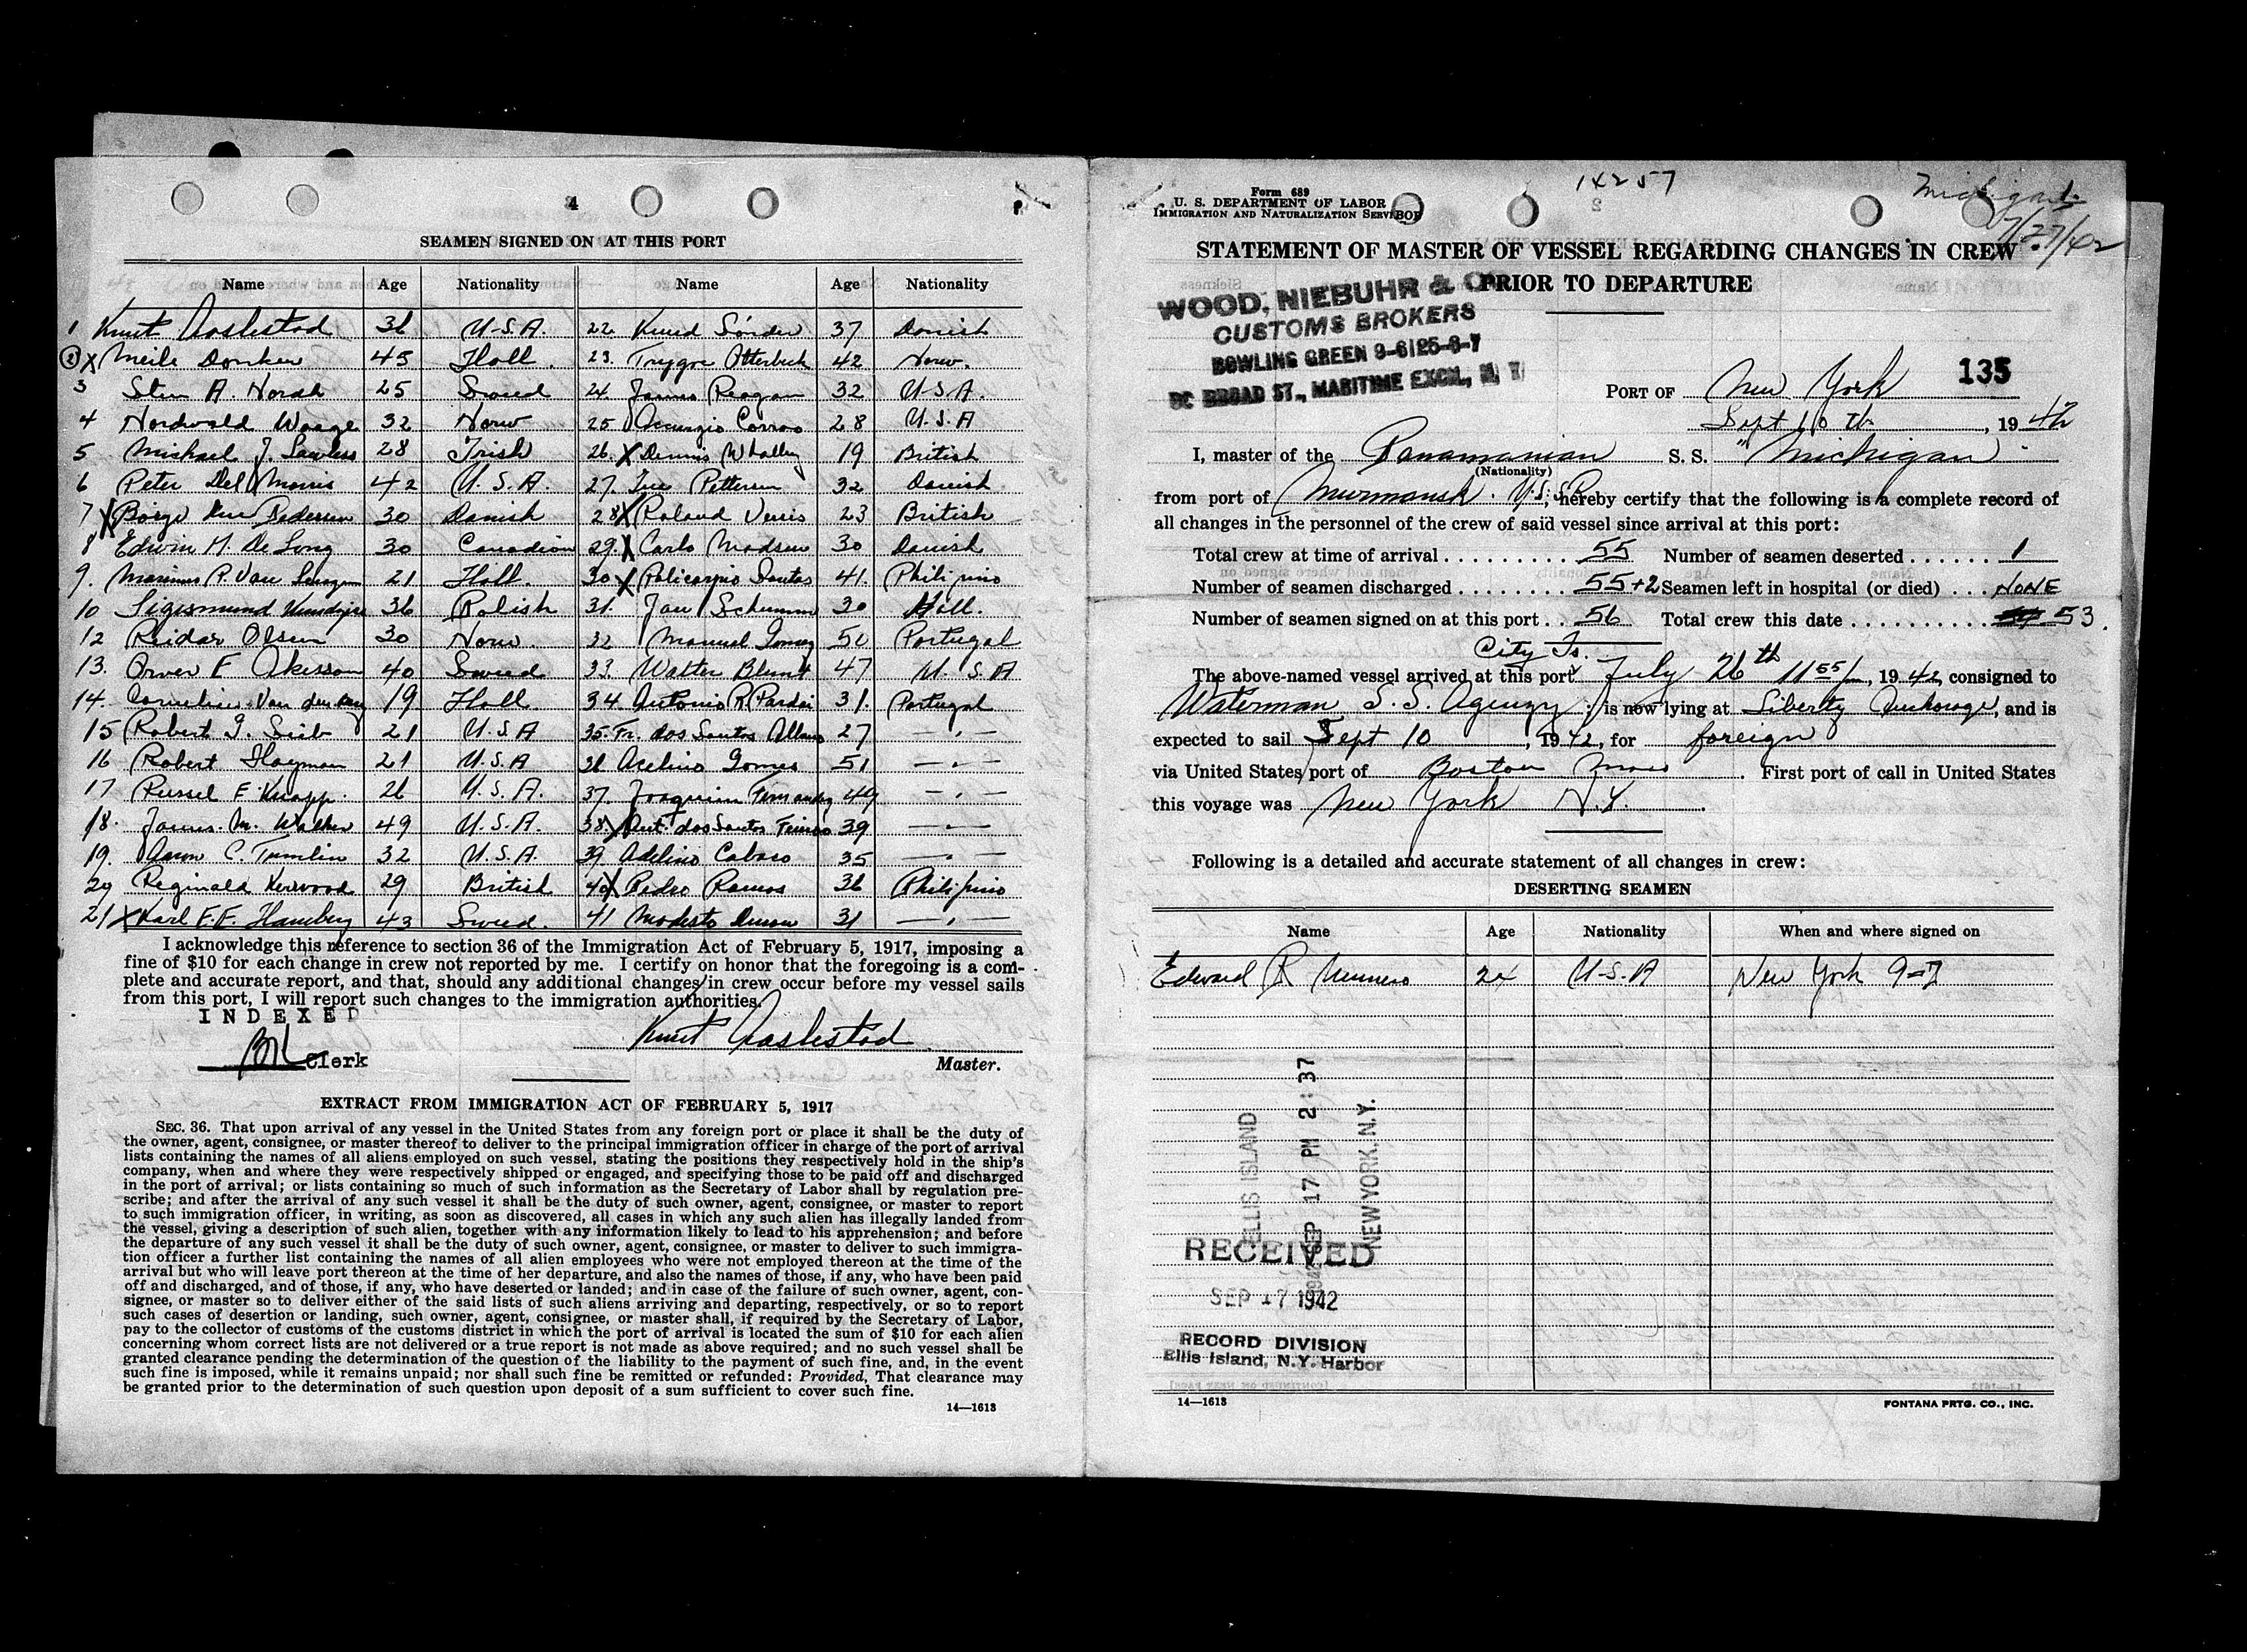 4
SEAMEN SIGNED ON AT THIS PORT
Name Age Nationality Name Age Nationality
1 Knut Aaslestad 36 U.S.A. 22. Knud Sönder 37 Danish
2 X Donker 45 Holl. 23. Trygve Otterbech 42 Norw.
3 Sten A. Norah 25 Swed 24. James Reagan 32 U.S.A.
4 Nordwald Waage 32 Norw 25 Corrao 28 U.S.A
5 Michael J. Lawless 28 Irish 26. X Dennis Whalley 19 British
6 Peter Del Morris 42 U.S.A. 27. Petterson 32 Danish
7 X Börge Pedersen 30 Danish 28 X Roland 23 British
8 Edwin H. De Long 30 Canadian 29. X Carlo Madsen 30 Danish
9. Marinus P. Van 21 Holl. 30 X Policarpio Santos 41. Philipino
10 Sigismund 36 Polish 31. Jan 30 Holl.
12 Reidar Olsen 30 Norw. 32 Manuel Gomez 50 Portugal
13. E Akesson 40 Swed 33. Walter Blunt 47 U.S.A
14. Cornelius Van den 19 Holl 34. Antonio R. 31. Portugal
15 Robert G. Seib 21 U.S.A 35. Fr. dos Santos 27 — " —
16 Robert Hayman 21 U.S.A 36 Acelino Gomes 51 — " —
17 Russel E Knapp. 26 U.S.A. 37. Joaquim Fernandez 49 — " —
18. James. M. Walker 49 U.S.A. 38 X Ant. dos Santos 39 — " —
19. Aaron C. Tumlin 32 U.S.A. 39. Adelino 35 — " —
20 Reginald Kerwood 29 British 40 X Pedro Ramos 36 Philipino
21 X Karl E.F. Hamberg 43 Swed. 41 Modesto 31 — " —
I acknowledge this reference to section 36 of the Immigration Act of February 5, 1917, imposing a
fine of $10 for each change in crew not reported by me. I certify on honor that the foregoing is a com-
plete and accurate report, and that, should any additional changes in crew occur before my vessel sails
from this port, I will report such changes to the immigration authorities.
INDEXED
Clerk
Knut Aaslestad
Master.
EXTRACT FROM IMMIGRATION ACT OF FEBRUARY 5, 1917
SEC. 36. That upon arrival of any vessel in the United States from any foreign port or place it shall be the duty of
the owner, agent, consignee, or master thereof to deliver to the principal immigration officer in charge of the port of arrival
lists containing the names of all aliens employed on such vessel, stating the positions they respectively hold in the ship's
company, when and where they were respectively shipped or engaged, and specifying those to be paid off and discharged
in the port of arrival; or lists containing so much of such information as the Secretary of Labor shall by regulation pre-
scribe; and after the arrival of any such vessel it shall be the duty of such owner, agent, consignee, or master to report
to such immigration officer, in writing, as soon as discovered, all cases in which any such alien has illegally landed from
the vessel, giving a description of such alien, together with any information likely to lead to his apprehension; and before
the departure of any such vessel it shall be the duty of such owner, agent, consignee, or master to deliver to such immigra-
tion officer a further list containing the names of all alien employees who were not employed thereon at the time of the
arrival but who will leave port thereon at the time of her departure, and also the names of those, if any, who have been paid
off and discharged, and of those, if any, who have deserted or landed; and in case of the failure of such owner, agent, con-
signee, or master so to deliver either of the said lists of such aliens arriving and departing, respectively, or so to report
such cases of desertion or landing, such owner, agent, consignee, or master shall, if required by the Secretary of Labor,
pay to the collector of customs of the customs district in which the port of arrival is located the sum of $10 for each alien
concerning whom correct lists are not delivered or a true report is not made as above required; and no such vessel shall be
granted clearance pending the determination of the question of the liability to the payment of such fine, and, in the event
such fine is imposed, while it remains unpaid; nor shall such fine be remitted or refunded: Provided, That clearance may
be granted prior to the determination of such question upon deposit of a sum sufficient to cover such fine.
14—1613
Form 689
U. S. DEPARTMENT OF LABOR
IMMIGRATION AND NATURALIZATION SERVICE
14257
Michigan
7/27/42
STATEMENT OF MASTER OF VESSEL REGARDING CHANGES IN CREW
PRIOR TO DEPARTURE
WOOD, NIEBUHR & CO.
CUSTOMS BROKERS
BOWLING GREEN 9-6125-6-7
BROAD ST., MARITIME EXCH., N. Y.
135
PORT OF New York
Sept 10 th, 1942
I, master of the Panamanian S. S. "Michigan"
(Nationality)
from port of Murmansk. U.S.S.R, hereby certify that the following is a complete record of
all changes in the personnel of the crew of said vessel since arrival at this port:
Total crew at time of arrival . . . . 55 Number of seamen deserted . . . . 1
Number of seamen discharged . . . . 55+2 Seamen left in hospital (or died) . . . NONE
Number of seamen signed on at this port . . 56 Total crew this date . . . . 53.
City Is.
The above-named vessel arrived at this port July 26th 1155 pm, 1942, consigned to
Waterman S.S. Agency; is now lying at Liberty Anchorage, and is
expected to sail Sept 10, 1942, for foreign
via United States port of Boston Mass. First port of call in United States
this voyage was New York N.Y.
Following is a detailed and accurate statement of all changes in crew:
DESERTING SEAMEN
Name Age Nationality When and where signed on
Edward R. 24 U.S.A New York 9-7
ELLIS ISLAND
1942 SEP 17 PM 2:37
NEW YORK, N.Y.
RECEIVED
SEP 17 1942
RECORD DIVISION
Ellis Island, N.Y. Harbor
14—1613
FONTANA PRTG. CO., INC.